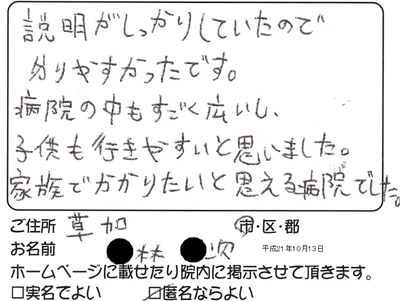 説明がしっかりしていたので
分りやすかったです。
病院の中もすごく広いし、
子供も行きやすいと思いました。
家族でかかりたいと思える病院でした。
ご住所 草加 市・区・郡
お名前 ●林 ●次 平成21年10月13日
ホームページに載せたり院内に掲示させて頂きます。
□実名でよい ☑匿名ならよい